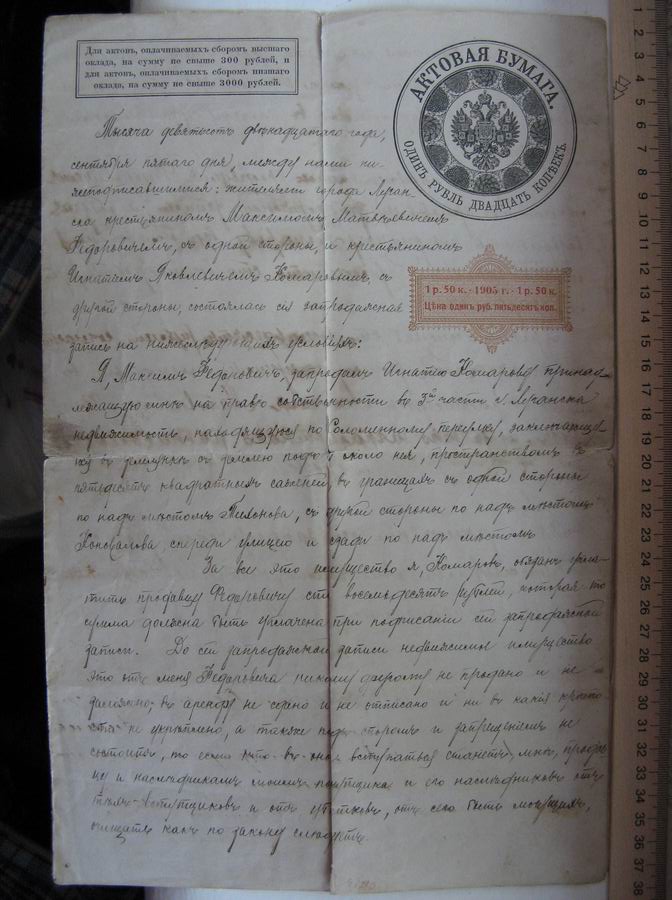 Для актовъ, оплачиваемыхъ сборомъ высшаго
оклада, на сумму не свыше 300 рублей, и
для актовъ, оплачиваемыхъ сборомъ низшаго
оклада, на сумму не свыше 3000 рублей.
АКТОВАЯ БУМАГА.
ОДИНЪ РУБЛЬ ДВАДЦАТЬ КОПѢЕКЪ
Тысяча девятьсотъ двѣнадцатаго года,
сентября пятаго дня, между нами ни-
жеподписавшимися: жителями города Луган-
ска крестьяниномъ Максимомъ Матвѣевичемъ
Федоровичемъ, съ одной стороны, и крестьяниномъ
Игнатіемъ Яковлевичемъ Комаровымъ, съ
другой стороны, состоялась сія запродажная
запись на нижеслѣдующихъ условіяхъ:
1 р. 50 к. - 1905 г. - 1 р. 50 к.
Цѣна одинъ руб. пятьдесятъ коп.
Я, Максимъ Федоровичъ, запродалъ Игнатію Комарову принад-
лежащую мнѣ на правѣ собственности въ 3й части г. Луганска
недвижимость, находящуюся по переулку, заключающу-
юся въ землянкѣ съ землею подъ и около нея, пространствомъ въ
пятьдесятъ квадратныхъ саженей, въ границахъ съ одной стороны
по надъ мѣстомъ Тихонова, съ другой стороны по надъ мѣстомъ
Коновалова, спереди улицею и сзади по надъ мѣстомъ
За все это имущество я, Комаровъ, обязанъ упла-
тить продавцу Федоровичу сто восемьдесятъ рублей, которая
сумма должна быть уплачена при подписаніи сей запродажной
записи. До сей запродажной записи недвижимое имущество
это отъ меня Федоровича никому другому не продано и не
заложено, въ аренду не сдано и не отписано и ни въ какія крѣпо-
сти не укрѣплено, а также подъ споромъ и запрещеніемъ не
состоитъ, то если кто въ оное вступаться станетъ, мнѣ, продав-
цу и наслѣдникамъ моимъ покупщика и его наслѣдниковъ отъ
тѣхъ вступщиковъ и отъ убытковъ, отъ сего быть могущихъ,
очищать какъ по закону слѣдуетъ.
1
2
3
4
5
6
7
8
9
10
11
12
13
14
15
16
17
18
19
20
21
22
23
24
25
26
27
28
29
30
31
32
33
34
35
36
37
38